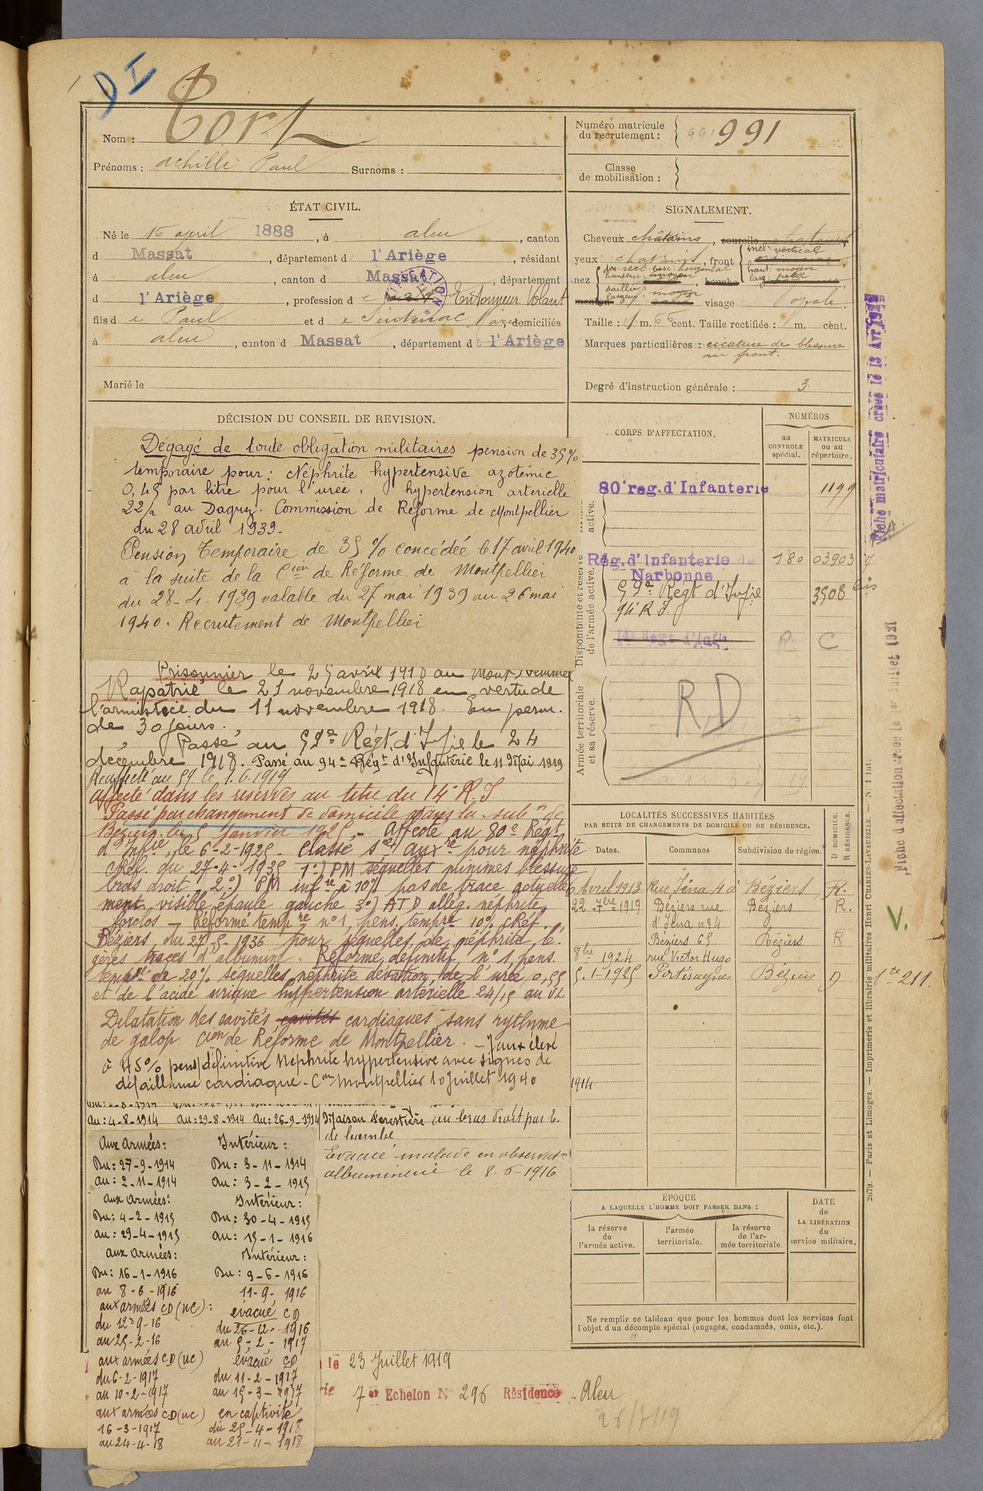 D I
Nom : Tort
Prénoms : achille Paul Surnoms :
Numéro matricule
du recrutement : 991
Classe
de mobilisation :
ÉTAT CIVIL.
Né le 16 april 1888, à aleu, canton
d Massat, département d l'Ariège, résidant
à aleu, canton d Massat, département
d l'Ariège, profession d Enfourneur Volant
fils de Paul et de Sentenac domiciliés
à aleu, canton d Massat, département d l'Ariège
Marié le
SIGNALEMENT.
Cheveux châtains, sourcils
yeux, front incl: vertical
haut: moyen
nez base: horizontal
visage
Taille : 1 m. cent. Taille rectifiée : m. cent.
Marques particulières : cicatrice de blessure
au front.
Degré d'instruction générale : 3
DÉCISION DU CONSEIL DE REVISION.
Dégagé de toute obligation militaires pension de 35%
temporaire pour : Néphrite hypertensive azotémie
0,45 par litre pour l'urée. hypertension artérielle
22/12 au Vaquez. Commission de Réforme de Montpellier
du 28 avril 1939.
Pension Temporaire de 35 % concédée le 17 avril 1940
à la suite de la Cion de Réforme de Montpellier
du 28-4-1939 valable du 27 mai 1939 au 26 mai
1940. Recrutement de Montpellier
Prisonnier le 25 avril 1918 au Mont Kemmel
Rapatrié le 21 novembre 1918 en vertu de
l'armistice du 11 novembre 1918. En perm.
de 30 jours.
Passé au 59e Régt d'Infie le 24
décembre 1918. Passé au 94e Régt d'Infanterie le 11 Mai 1919
Réaffecté au 59 le 1.6.1919
affecté dans les réserves au titre du 14e R.I.
Passé par changement de domicile dans la subon de
Béziers le 5 Janvier 1925. Affecté au 80e Régt
d'Infrie, le 6-2-1925. Classé sce auxre pour néphrite
chef. du 27-4-1935 1°) PM séquelles minimes blessure
bras droit. 2°) PM infre à 10% pas de trace actuelle
ment visible épaule gauche 3°) ATD allég. néphrite
forclos - Réformé tempre n° 1, pens. tempre 10%
Béziers du 27-5-1936 pour séquelles de néphrite lé-
gères traces d'albumine. Réformé définitif n° 1, pens.
20% séquelles néphrite de l'urée 0,55
et de l'acide urique hypertension artérielle 24/15 au
Dilatation des cavités cardiaques sans rythme
de galop Cion de Réforme de Montpellier. - Taux élevé
à 45% pens. définitive Néphrite hypertensive avec signes de
défaillance cardiaque - Con Montpellier 10 Juillet 1940
au: 4-8-1914 au: 29-8-1914 au: 26-9-1914
Maison Forestière au bras droit par b.
de bombe
Evacué malade en observatn
albuminerie le 8-6-1916
Aux armées: Intérieur:
Du: 27-9-1914 Du: 3-11-1914
au: 2-11-1914 au: 3-2-1915
aux armées: Intérieur:
Du: 4-2-1915 Du: 30-4-1915
au: 29-4-1915 au: 15-1-1916
aux armées: Intérieur:
Du: 16-1-1916 Du: 9-6-1916
au 8-6-1916 11-9-1916
aux armées CD (uc): évacué CD
du 12-9-16 du 26-12-1916
au 25-2-16 au 5-2-1917
aux armées CD (uc) évacué CD
du 6-2-1917 du 11-2-1917
au 10-2-1917 au 15-3-1917
aux armées CD (uc) en captivité
16-3-1917 du 25-4-1918
au 24-4-18 au 21-11-1918
le 23 Juillet 1919
7e Echelon N° 296 Résidence Aleu
26/7/19
CORPS D'AFFECTATION.
NUMÉROS
au
CONTROLE
spécial.
MATRICULE
ou au
répertoire.
active.
80e reg. d'Infanterie 1199
Disponibilité et réserve
de l'armée active.
Rég. d'Infanterie de 180 03903
Narbonne
59e Régt d'Infie 3508 bis
94e R.I.
14e Regt d'Infie R C
Armée territoriale
et sa réserve.
RD
LOCALITÉS SUCCESSIVES HABITÉES
PAR SUITE DE CHANGEMENTS DE DOMICILE OU DE RÉSIDENCE.
Dates. Communes Subdivision de région. D DOMICILE. R RÉSIDENCE.
Avril 1913 Rue Iéna 4 à Béziers R.
22 7bre 1919 Béziers rue Béziers R.
d'Iéna n° 4
Béziers 65 Béziers R
8bre 1924 rue Victor Hugo
5-1-1925 Portiragnes Béziers D
1914
ÉPOQUE
A LAQUELLE L'HOMME DOIT PASSER DANS :
la réserve
de
l'armée active.
l'armée
territoriale.
la réserve
de l'ar-
mée territoriale.
DATE
de
LA LIBÉRATION
du
service militaire.
Ne remplir ce tableau que pour les hommes dont les services font
l'objet d'un décompte spécial (engagés, condamnés, omis, etc.).
2679. — Paris et Limoges. — Imprimerie et librairie militaires Henri CHARLES-LAVAUZELLE. — N. 1 int.
Fiche matriculaire créée le 13 Avr 1921
Fiche d'affectation créée le 1er Juillet 1921
V.
211.